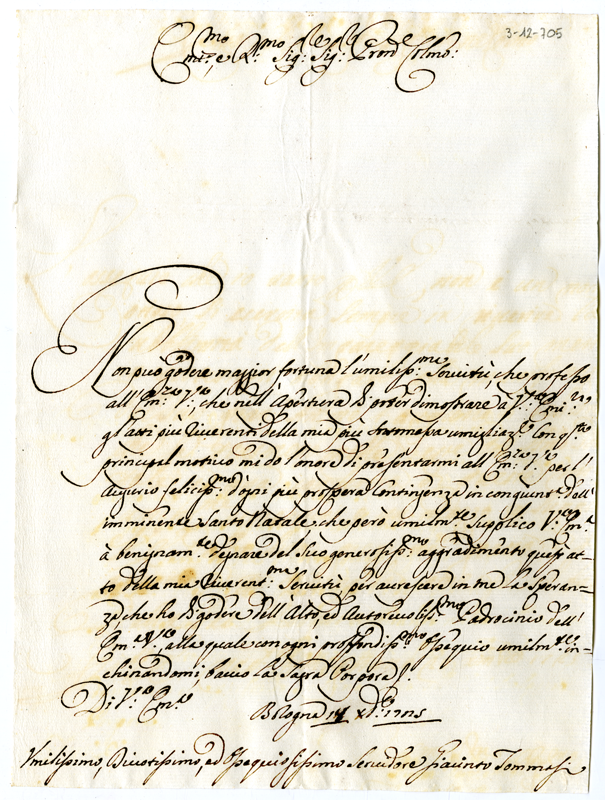 3-12-705
Em:mo e R:mo Sig:re Sig:re Pron:e Colmo:
Non può godere maggior fortuna l'umiliss:ma Servitù, che professo
all'Em:za V:ra, che nell'Apertura di poter dimostrare à V:ra Em:za
gl'atti più riverenti della mia più umigliaz:e Con q:sto
principal motivo mi do l'onore di presentarmi all'Em:za V:ra per l'
augurio feliciss:mo d'ogni più prospera Contingenza in congiunt:a dell'
imminente Santo Natale che però umilm:te Supplico V:ra Em:za
à benignam:te degnare del Suo generosiss:mo aggradimento quest'at-
to della mia riverent:ma Servitù per accrescere in me la Speran=
za che ho di godere dell'Alto, ed Autorevoliss:mo Padrocinio dell'
Em:za V:ra, alla quale con ogni profondiss:mo Ossequio umilm:te in=
chinandomi bacio la Sagra Porpora.
Di V:ra Em:za
Bologna X:bre 1705
Umilissimo, Divotissimo, ed Ossequiosissimo Servidore Giacinto Tommasi